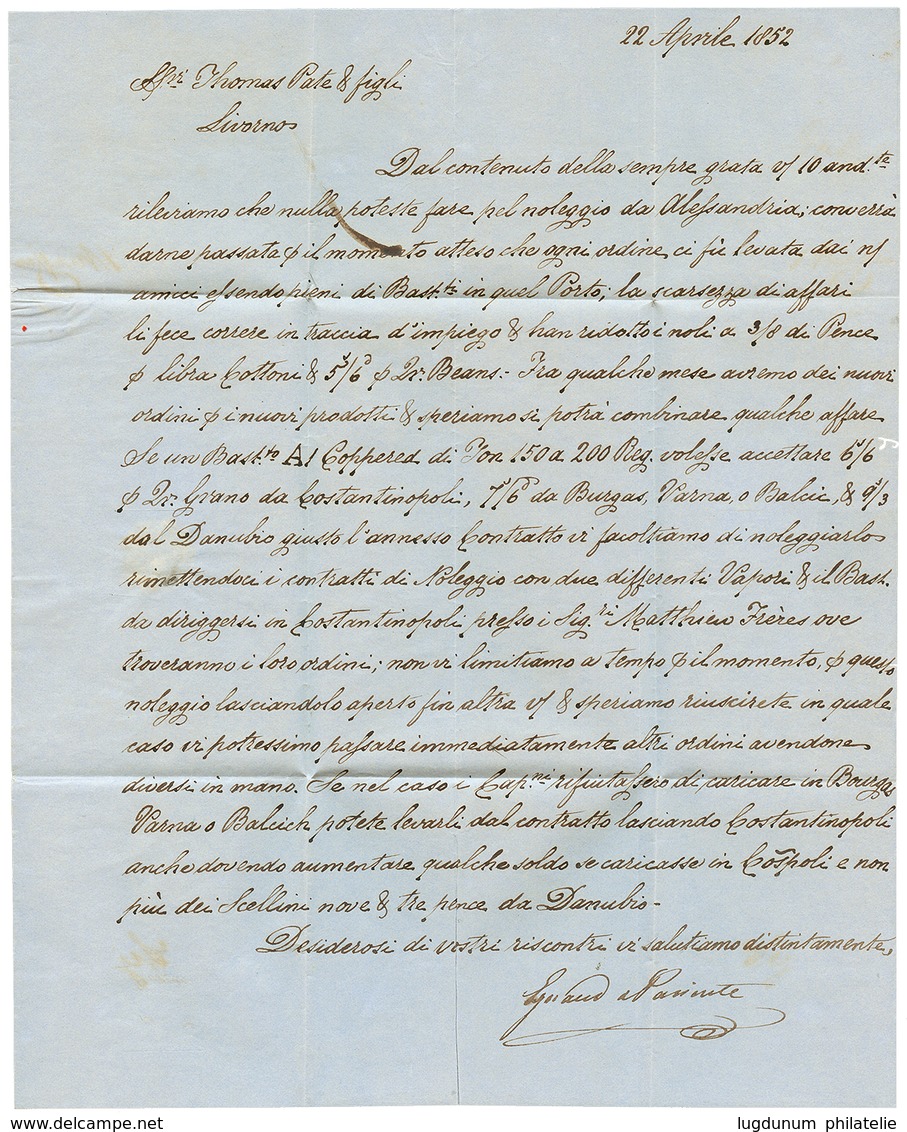 22 Aprile 1852
Thomas Pate & figli
Livorno
Dal contenuto della sempre grata v/ 10 and.te
rileviamo che nulla poteste fare pel noleggio da Alessandria; converrà
darne passata p il momento atteso che ogni ordine ci fù levata dai n/
amici essendo pieni di Bast.ti in quel Porto; la scarsezza di affari
li fece correre in traccia d'impiego & han ridotto i noli a 3/8 di Pence
p libra Cottoni & 5/6 p Qr. Beans.- Fra qualche mese avremo dei nuovi
ordini p i nuovi prodotti & speriamo si potrà combinare qualche affare
Se un Bast.to A1 Coppered di Ton 150 a 200 Reg. volesse accettare 6/6
p Qr. Grano da Costantinopoli, 7/6 da Burgas, Varna, o Balcic, & 9/3
dal Danubio giusto l'annesso Contratto vi facoltiamo di noleggiarlo
rimettendoci i contratti di Noleggio con due differenti Vapori & il Bast.
da diriggersi in Costantinopoli presso i Sig.ri Matthieu Frères ove
troveranno i loro ordini; non vi limitiamo a tempo p il momento, p questo
noleggio lasciandolo aperto fin altra v/ & speriamo riuscirete in quale
caso vi potressimo passare immediatamente altri ordini avendone
diversi in mano. Se nel caso i Cap.ni rifiutassero di caricare in Bourgas
Varna o Balcick potete levarli dal contratto lasciando Costantinopoli
anche dovendo aumentare qualche soldo se caricasse in Cospoli e non
più dei Scellini nove & tre pence da Danubio -
Desiderosi di vostri riscontri vi salutiamo distintamente,
delcampe.net
lugdunum philatelie